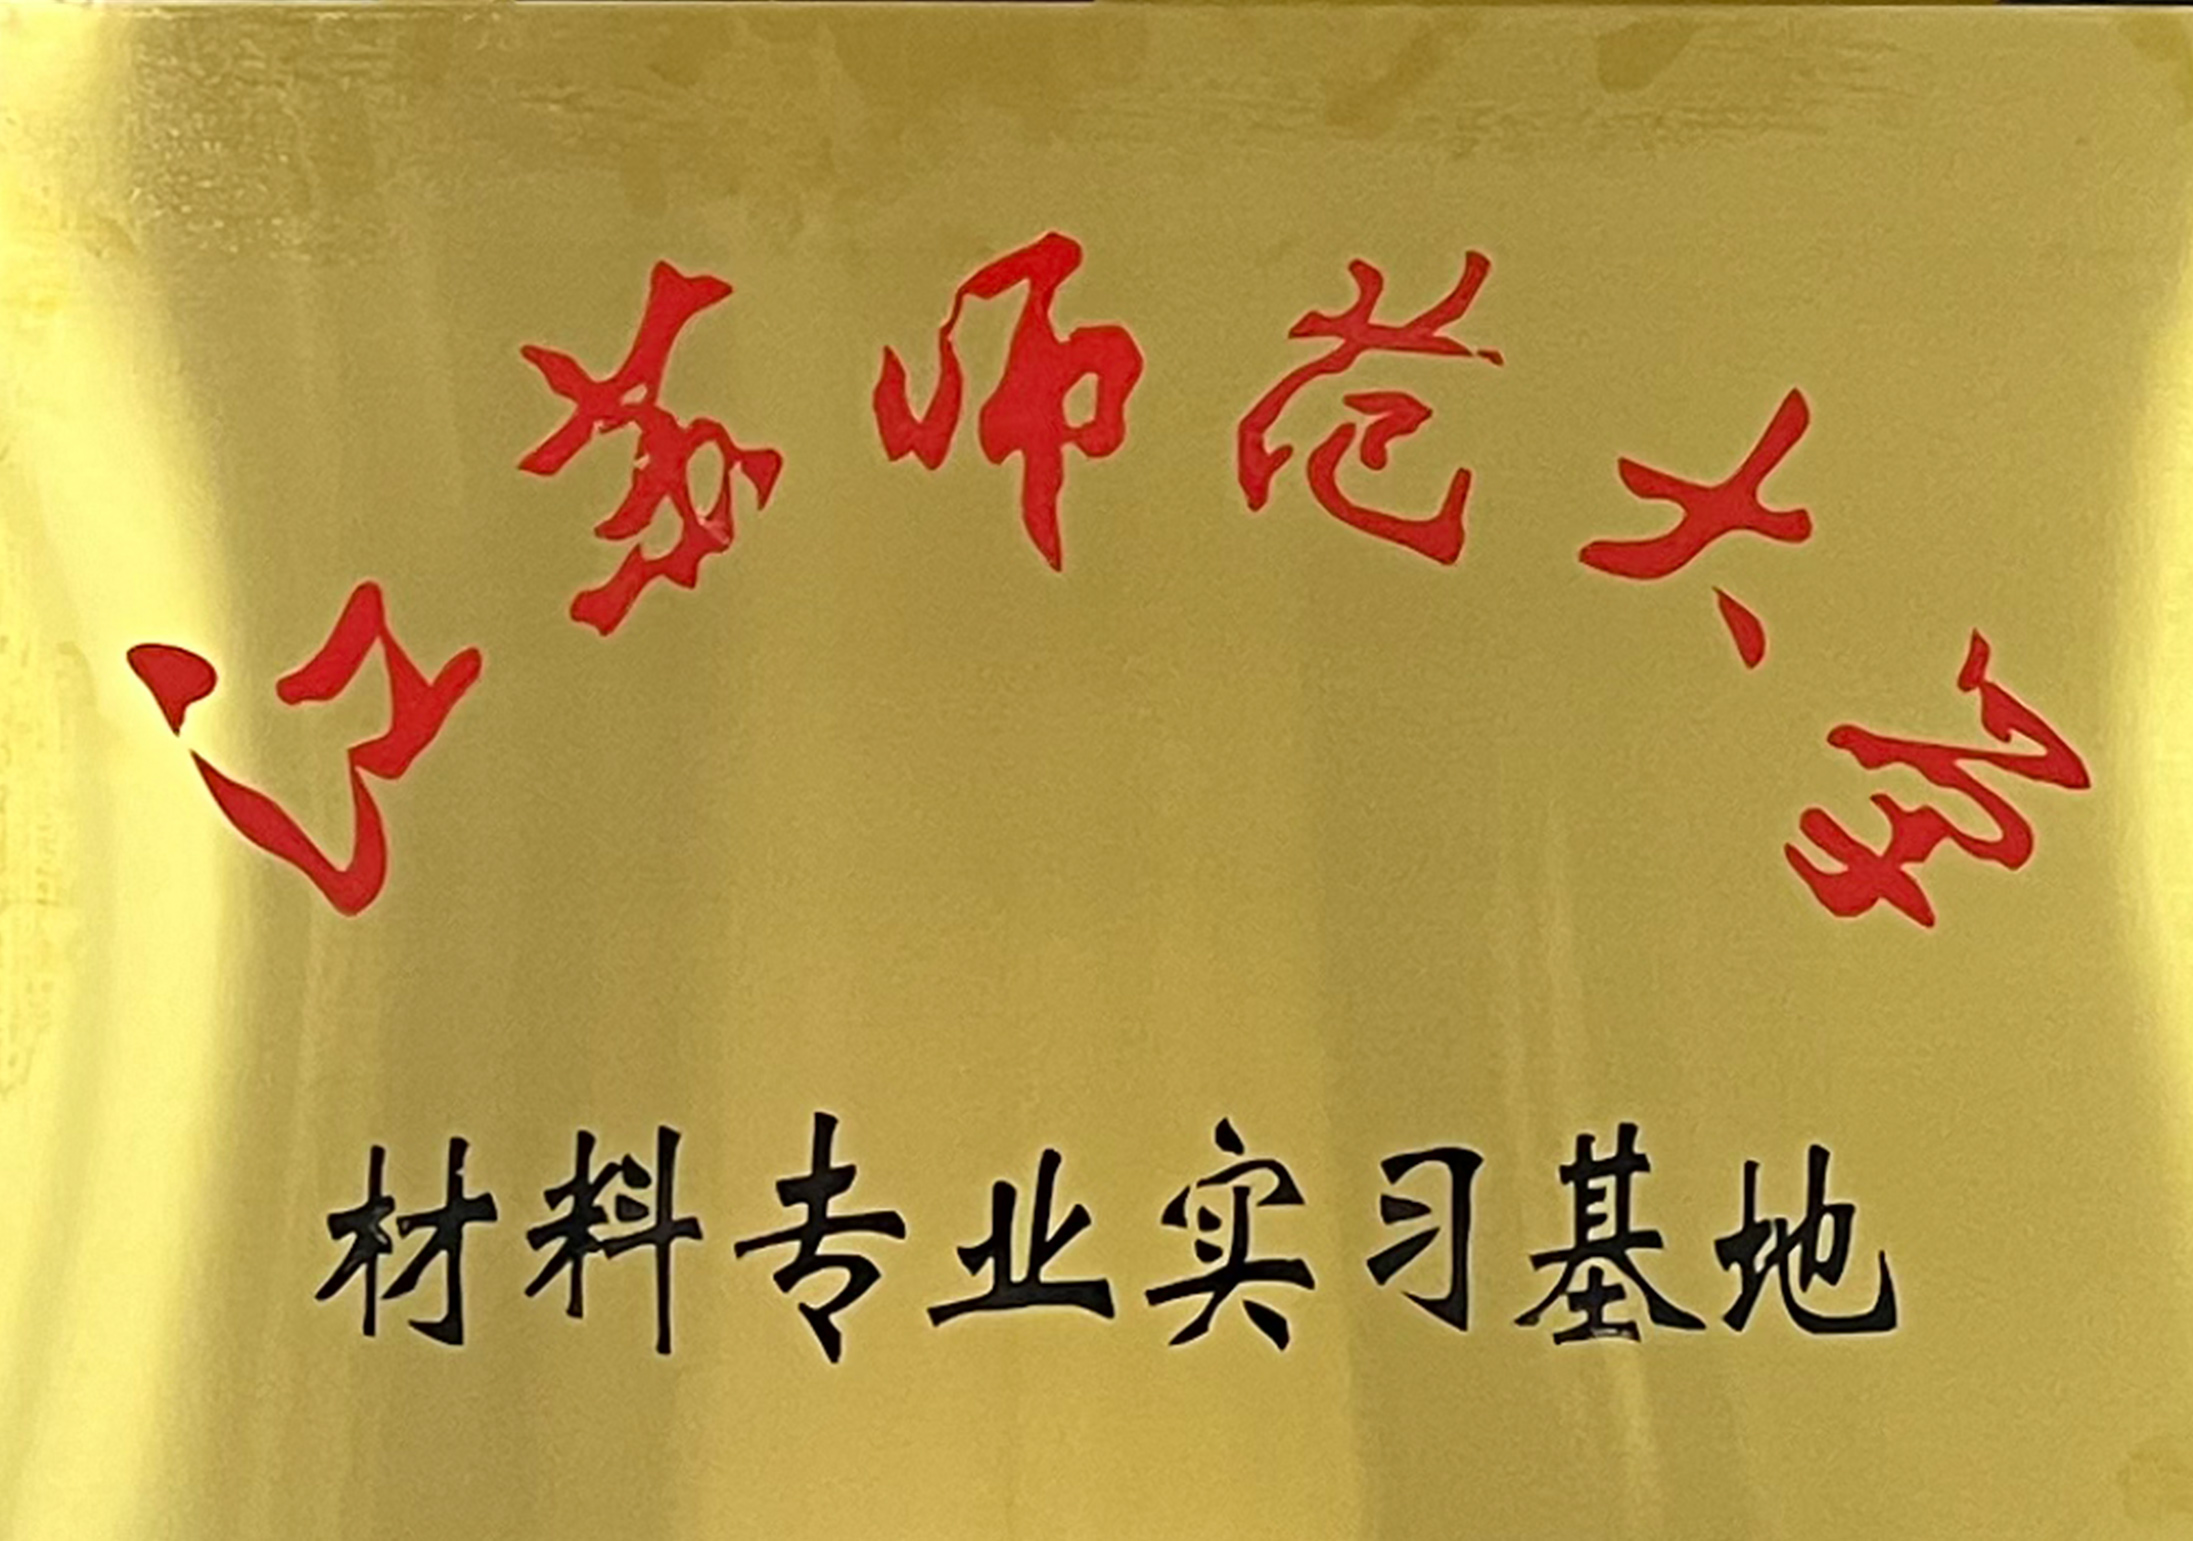 江苏师范大学
材料专业实习基地